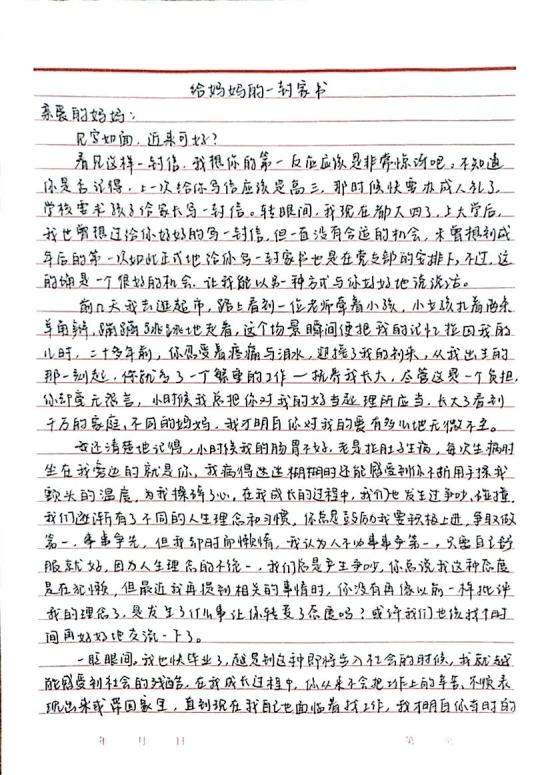 给妈妈的一封家书
亲爱的妈妈：
见字如面，近来可好？
看见这样一封信，我想你的第一反应应该是非常惊讶吧，不知道
你是否记得，上一次给你写信应该是高三，那时候快要办成人礼了，
学校要求孩子给家长写一封信。转眼间，我现在都大四了，上大学后，
我也曾想过给你好好的写一封信，但一直没有合适的机会，未曾想到成
年后的第一次如此正式地给你写一封家书也是在党支部的安排下，不过，这
的确是一个很好的机会，让我能以另一种方式与你好好地说说话。
前几天我去逛超市，路上看到一位老师牵着小孩，小女孩扎着两条
羊角辫，蹦蹦跳跳地走着，这个场景瞬间便把我的记忆拉回我的
儿时，二十多年前，你忍受着疼痛与泪水，迎接了我的到来，从我出生的
那一刻起，你就多了一个繁重的工作一抚养我长大，尽管这是一个负担，
你却毫无怨言，小时候我总把你对我的好当处理所应当，长大了看到
千万的家庭，不同的妈妈，我才明白你对我的爱有多么地无微不至。
我还清楚地记得，小时候我的肠胃不好，老是拉肚子生病，每次生病时
坐在我旁边的就是你，我病得迷迷糊糊时还能感受到你不断用手探我
额头的温度，为我操碎了心，在我成长的过程中，我们也发生过争吵、碰撞，
我们逐渐有了不同的人生理念和习惯，你总是鼓励我要积极上进，争取做
第一，事事争先，但我却时而懒惰，我认为人不必事事争第一，只要自己舒
服就好，因为人生理念的不统一，我们总是产生争吵，你总说我这种态度
是在犯懒，但最近我再提到相关的事情时，你没有再像以前一样批评
我的理念了，是发生了什么事让你转变了态度吗？或许我们也该找个时
间再好好地交流一下了。
一眨眼间，我也快毕业了，越是到这种即将步入社会的时候，我就越
能感受到社会的残酷，在我成长过程中，你从来不会把工作上的辛苦、不快表
现出来或带回家里，直到现在我自己也面临着找工作，我才明白你有时的
年 月 日
第 页